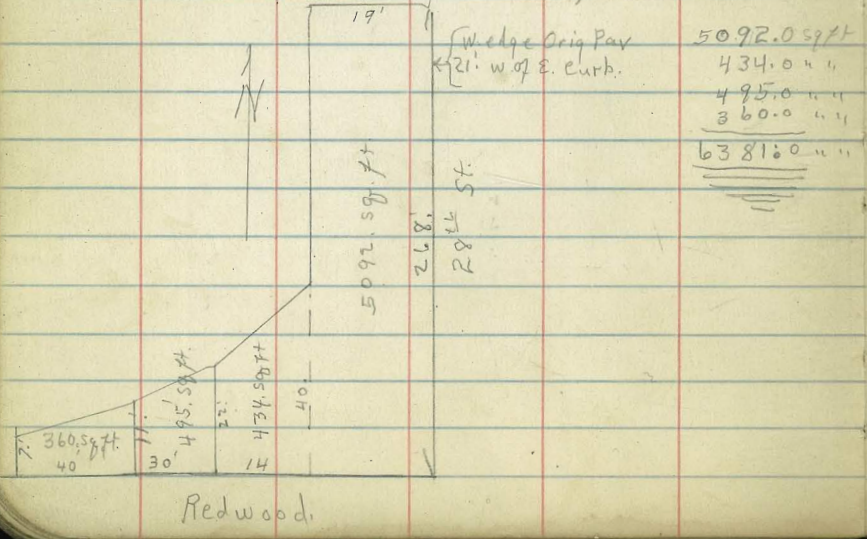 19'
W. edge Orig Pav
21' W. of E. Curb.
5092.0 sq ft
434.0 " "
495.0 " "
360.0 " "
6381.0 " "
N
5092. sq. ft.
268'
28th St.
495. sq. ft.
434. sq ft
40.
22'
11'
7'
360. sq. ft.
40
30'
14
Redwood.